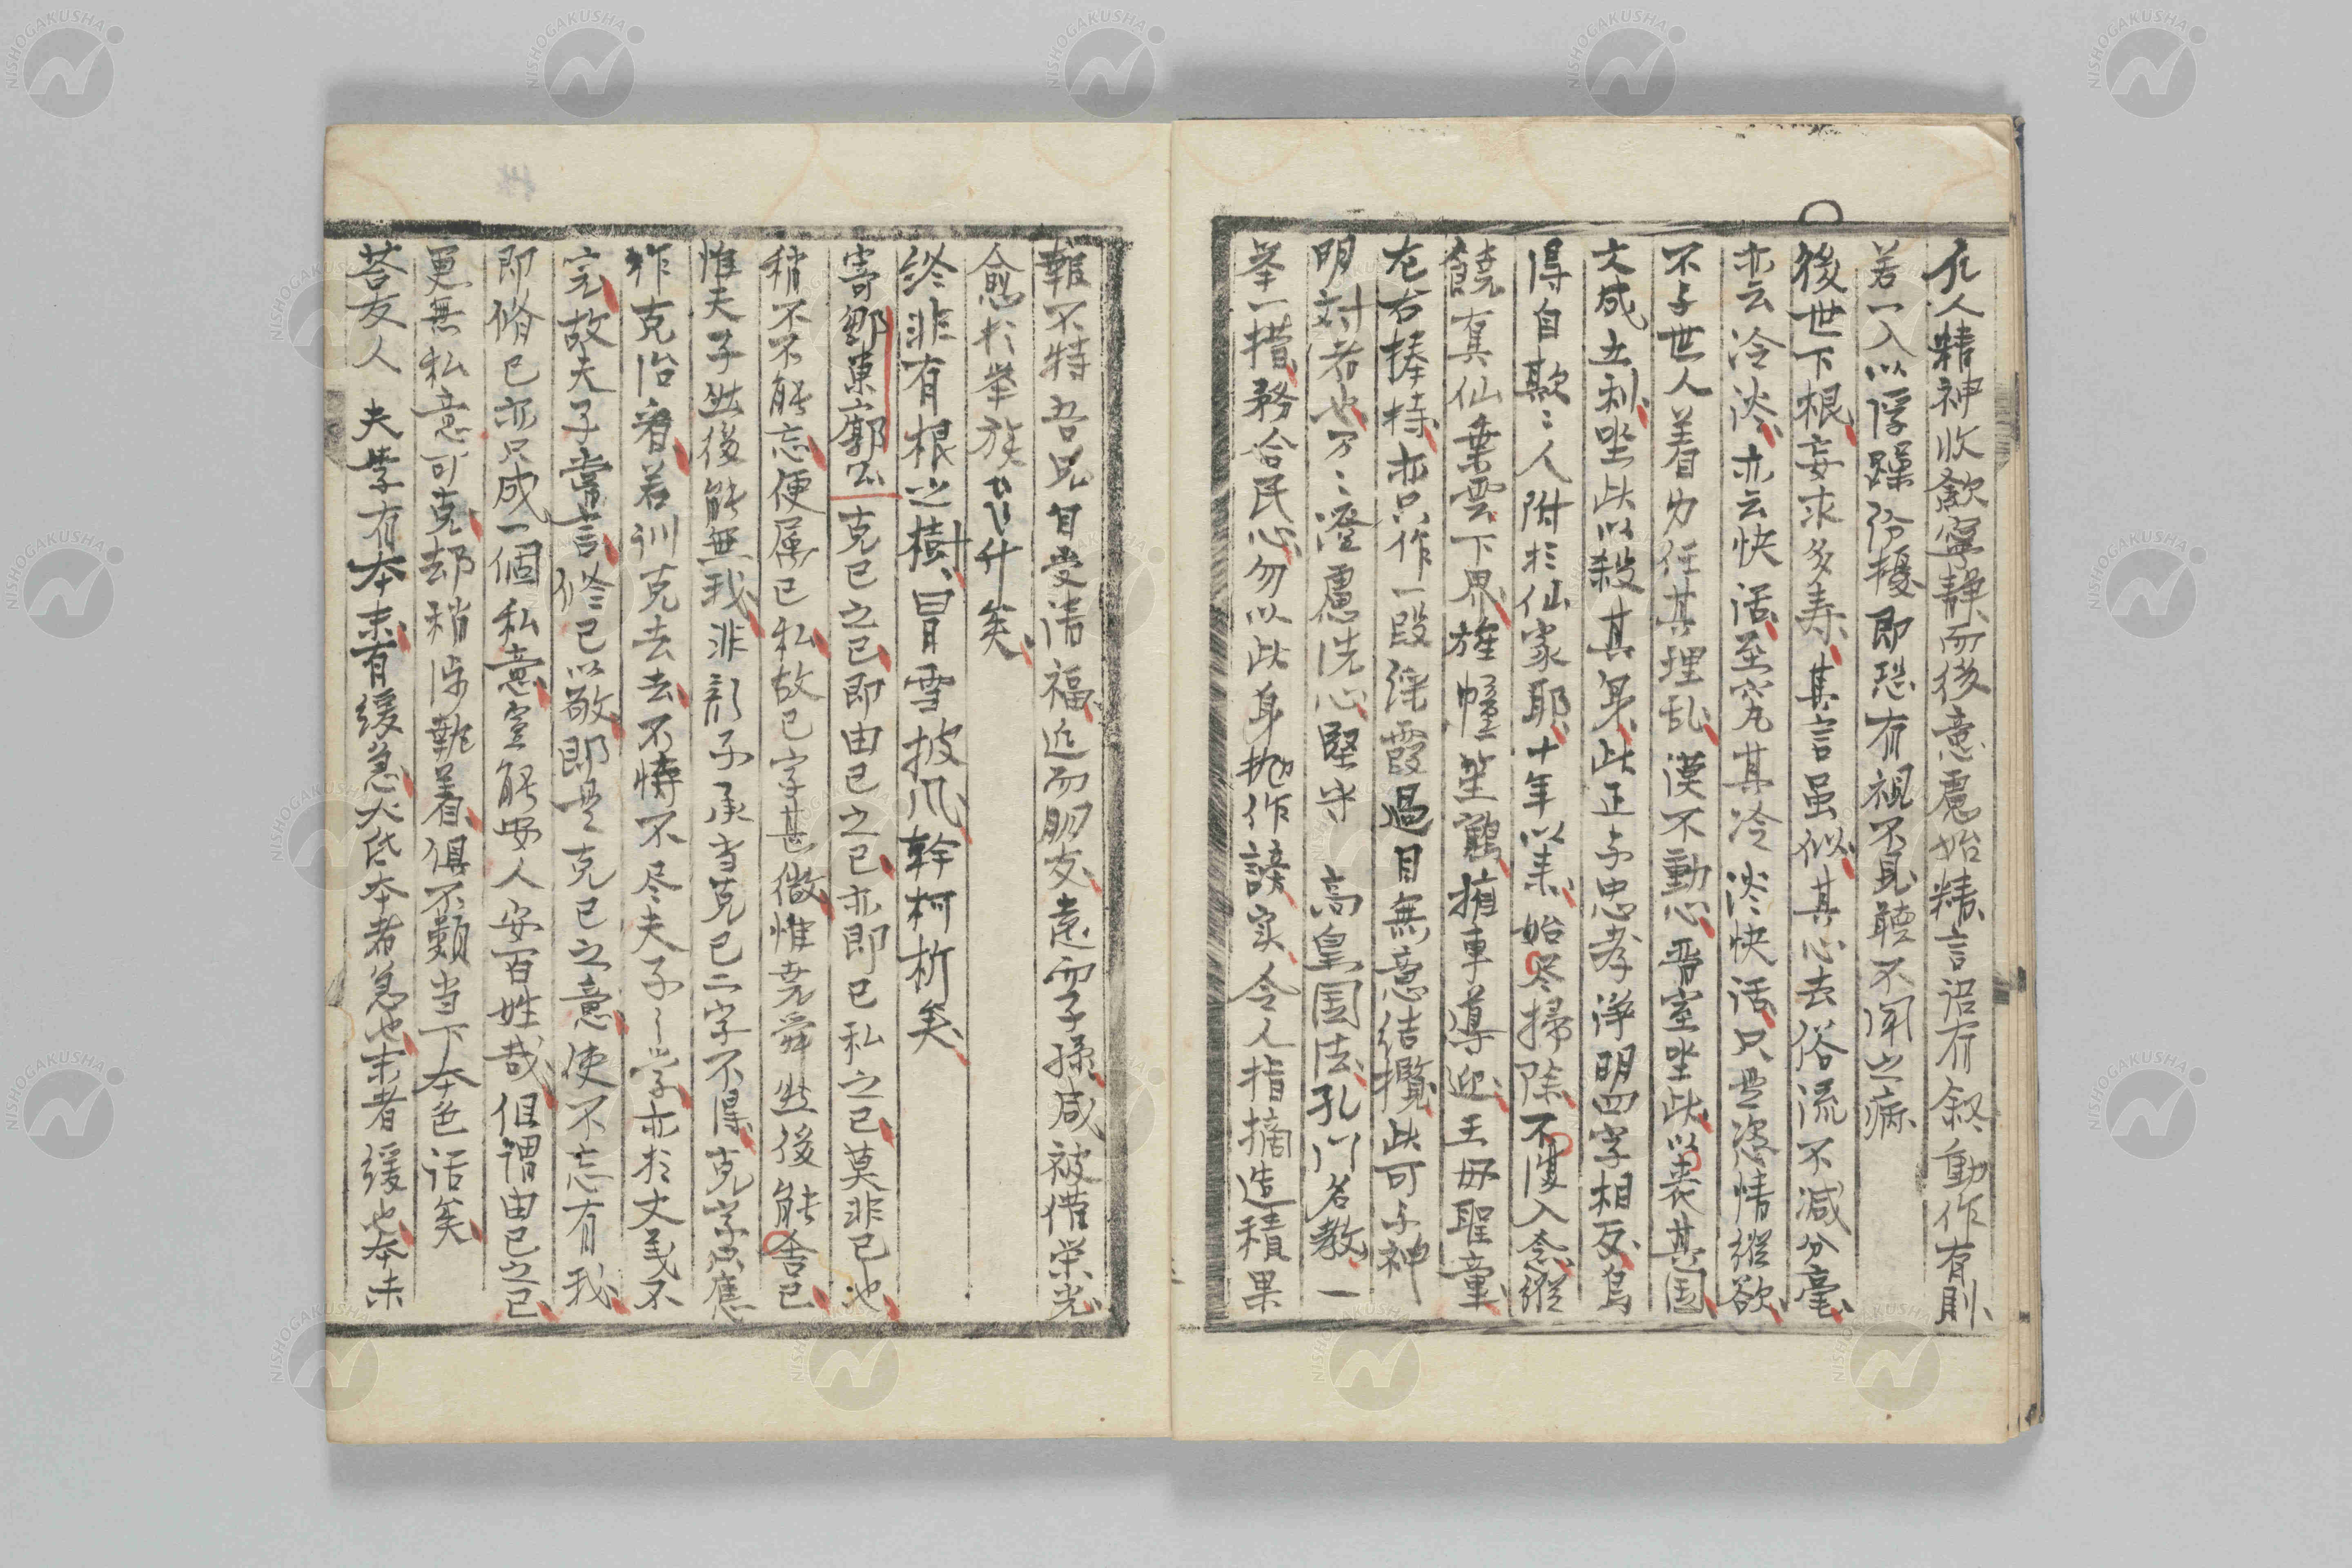 凡人精神收歛寧静而後意慮始精言语有叙動作有則
若一入以浮躁紛擾即恐有視不見聽不闻之病
後世下根妄求多寿其言虽似其心去俗流不减分毫
亦云冷淡亦云快活至究其冷淡快活只是恣情縦欲
不与世人着力任其理乱漠不動心晋室坐此以丧其国
文成五利坐此以殺其身此正与忠孝浄明四字相反烏
得自欺〻人附於仙家耶十年以来始尽掃除不復入念縦
饒真仙乗雲下界旌幢笙鶴擁車導迎王母聖童
左右捧持亦只作一段浮霞過目無意结攬此可与神
明対者也万〻澄慮洗心堅守 高皇国法孔门名教一
举一措務合民心勿以此身抛作謗实令人指摘造積果
報不特吾兄自受清福近而朋友遠而子孫咸被借栄光
愈於举族升矣
终非有根之樹冒雪披风幹柯折矣
寄鄒東廓公 克己之己即由己之己亦即己私之己莫非己也
稍不不能忘便属己私故己字甚微惟尭舜然後能舍己
惟夫子然後能無我非顔子承当克己二字不得克字只應
作克治看若训克去去不特不尽夫子之学亦於文义不
完故夫子嘗言修己以敬即是克己之意使不忘有我
即脩己亦只成一個私意豈能安人安百姓哉但謂由己之己
更無私意可克却稍涉執着俱不類当下本色话矣
荅友人 夫学有本末有缓急大氐本者急也末者缓也本末
NISHOGAKUSHA